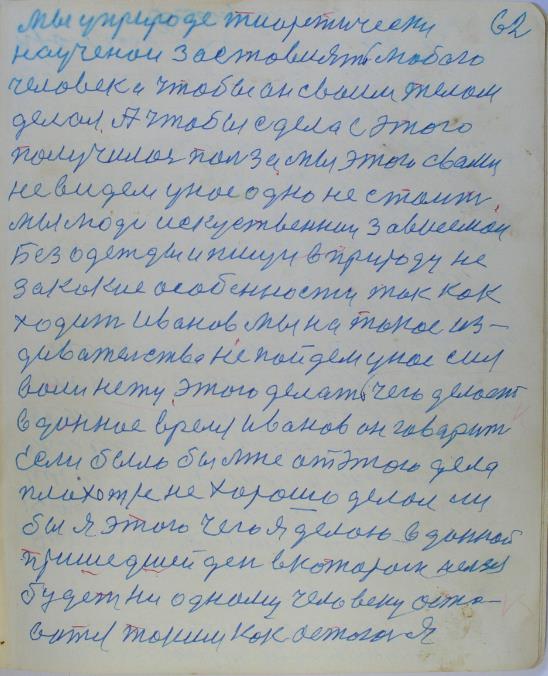 62
мы у природе тиоретически
наученаи заставиять любого
человека чтобы он своим телом
делал. А чтобы с дела с этого
получилоя полза мы этого с вами
не видем у нас одно не стоит
мы люди искуственнаи зависемаи
Без одежды и пищи в природу не
за какие особенности так как
ходит Иванов мы на такое из-
дивателства не пойдем у нас сил
воли нету этого делать, чего делает
в данное время Иванов он говарит
если было бы мне от этого дела
плохо тже не хорошо делал ли
бы я этого чего я делаю в данной
пришедшей ден в котором нелзя
будет ни одному человеку оста-
ватся таким как остался я